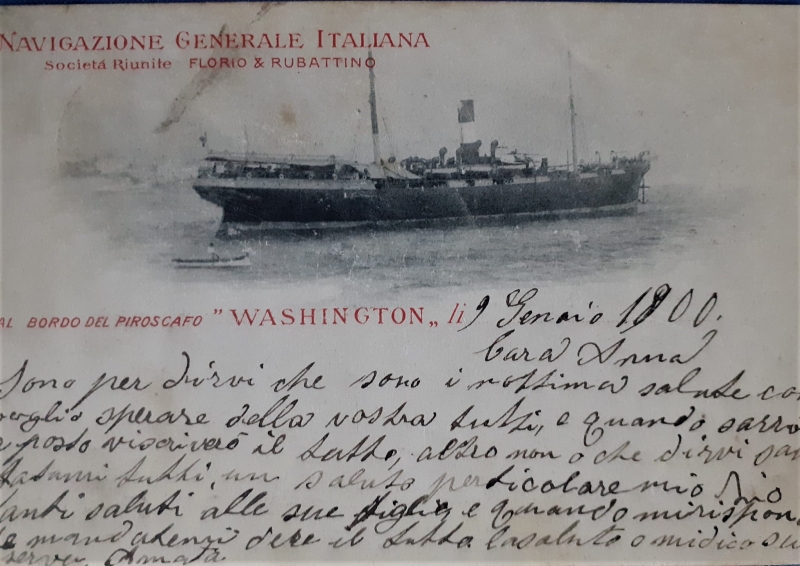 NAVIGAZIONE GENERALE ITALIANA
Societá Riunite FLORIO & RUBATTINO
AL BORDO DEL PIROSCAFO "WASHINGTON„ li 9 Genaio 1900.
Cara Anna
Sono per dirvi che sono i nottima salute co
voglio sperare della vostra tutti, e quando sarro
posto viscriveró il tutto, altro non o che dirvi
tutti, un saluto perticolare mio
tanti saluti alle sue figlie e quando mirispon
e mandatemi dere il tutto lasaluto o midico su
serva Amata